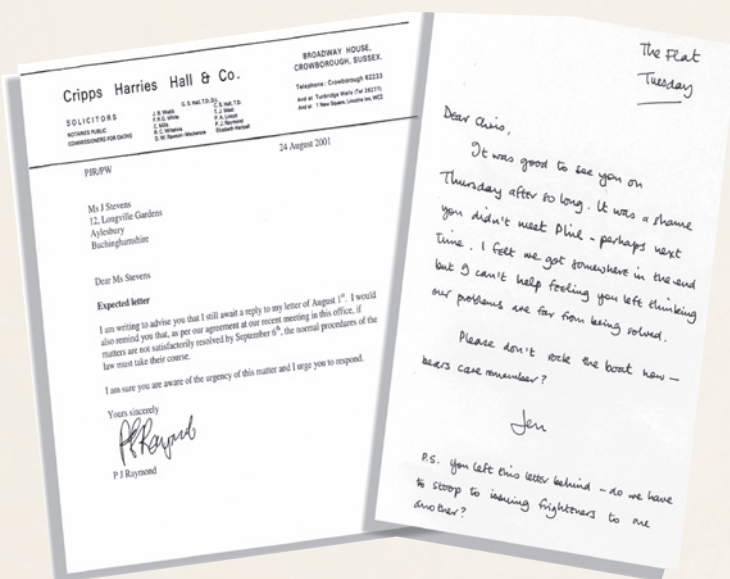 Cripps Harries Hall & Co.
SOLICITORS
NOTARIES PUBLIC
COMMISSIONERS FOR OATHS
G. S. Hall, T.D., 
J. B. Wells
F.R.G. White
C. Mills
R. C. Wiltshire
D. W. Rawson-Mackenzie
C. S. Hall, T.D.
T. J. West
P. A. Linton
P. J. Raymond
Elizabeth Hartsell
BROADWAY HOUSE,
CROWBOROUGH, SUSSEX.
Telephone: Crowborough 62233
And at Tunbridge Wells (Tel 26277)
And at 1 New Square, Lincolns Inn, WC2
PJR/PW
24 August 2001
Ms J Stevens
12, Longville Gardens
Aylesbury
Buchinghamshire
Dear Ms Stevens
Expected letter
I am writing to advise you that I still await a reply to my letter of August 1st. I would
also remind you that, as per our agreement at our recent meeting in this office, if
matters are not satisfactorily resolved by September 6th, the normal procedures of the
law must take their course.
I am sure you are aware of the urgency of this matter and I urge you to respond.
Yours sincerely
P J Raymond
The Flat
Tuesday
Dear Chris,
It was good to see you on
Thursday after so long. It was a shame
you didn't meet Phil - perhaps next
time. I felt we got somewhere in the end
but I can't help feeling you left thinking
our problems are far from being solved.
Please don't rock the boat now -
bears care remember?
Jen
P.S. you left this letter behind - do we have
to stoop to issuing frighteners to one
another?